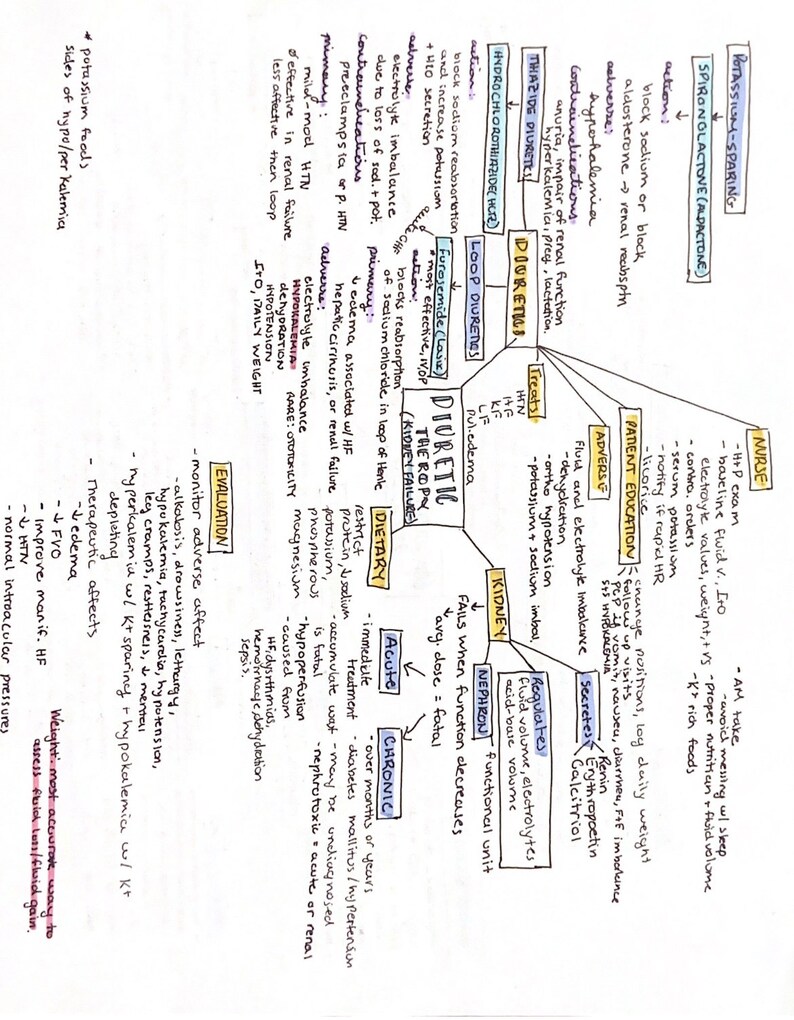 POTASSIUM-SPARING
SPIRONOLACTONE (ALDACTONE)
action:
block sodium or block
aldosterone → renal reabsptn
adverse:
hypohalemia
contraindications
anuria, impair of renal function
hyperkalemia, preg, lactation,
THIAZIDE DIURETICS
HYDROCHLOROTHIAZIDE (HCTZ)
action:
block sodium reabsorbtion
and increase potassium
+ H2O secretion
adverse
electrolyte imbalance
due to loss of sod. + pot.
contraindications
preeclampsia or p. HTN
primary:
mild-mod HTN
Ø effective in renal failure
less affective then loop
* potassium foods
sides of hypo/per kalemia
DIURETICS
LOOP DIURETICS
Furosemide (Lasix)
* most effective, IVOP
action:
blocks reabsorption
of sodium chloride in loop of Henle
primary:
↓ edema associated w/ HF
hepatic cirrhosis, or renal failure
adverse:
electrolyte imbalance
HYPOKALEMIA RARE: OTOTOXICITY
dehydration
HYPOTENSION
I+O, DAILY WEIGHT
Treats
HTN
HF
KF
LF
pul.edema
DIURETIC
THEROPY
(KIDNEY FAILURE)
NURSE
- H+P exam
- baseline fluid v. I+O
electrolyte values, weight, + VS
- contra. orders
- serum potassium
- notify if rapid HR
- licorice
- AM take
- avoid messing w/ sleep
- proper nutrition + fluid volume
- K+ rich foods
PATIENT EDUCATION
change positions, log daily weight
follow up visits
PCP if vomit, nausea, diarrhea, F+E imbalance
s+s HYPOKALEMIA
ADVERSE
fluid and electrolyte imbalance
- dehydration
- ortho hypotension
- potassium + sodium imbal.
KIDNEY
↓
FAILS when function decreases
↓
avg. dose = fatal
Secretes
Renin
Erythropoetin
Calcitriol
Regulates
fluid volume, electrolytes
acid-base volume
NEPHRON - functional unit
DIETARY
restrict
protein, ↓ sodium
potassium,
phospherous
magnesium
Acute
- immediate
treatment
- accumulate wast
is fatal
- hypoperfusion
- caused from
HF, dysrithmias,
hemorrhage, dehydation
sepsis.
CHRONIC
- over months or years
- diabetes mallitus / hypertension
- may be undiagnosed
- nephrotoxic = acute or renal
EVALUATION
- monitor adverse affect
- alkalosis, drowsiness, lethargy,
hypokalemia, tachycardia, hypotension,
leg cramps, restlesness, ↓ mental
- hyperkalemia w/ K+ sparing + hypokalemia w/ K+
depleting
- Therapeutic affects
- ↓ edema
- ↓ FVO
- improve manif. HF
- ↓ HTN
- normal intraocular pressures
Weight: most accurat way to
assess fluid loss/fluid gain.